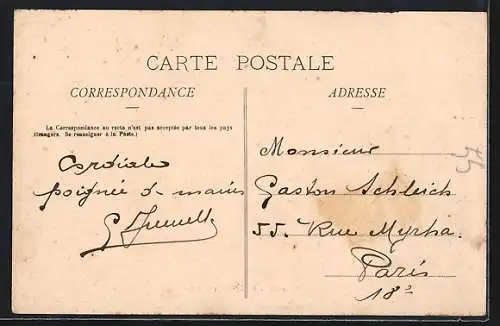 CARTE POSTALE
CORRESPONDANCE
ADRESSE
La Correspondance au recto n'est pas acceptée par tous les pays
étrangers. Se renseigner à la Poste.)
Cordiale
poignée d. mains
Monsieur
Gaston Schleich
55. Rue Myrha.
Paris
18e